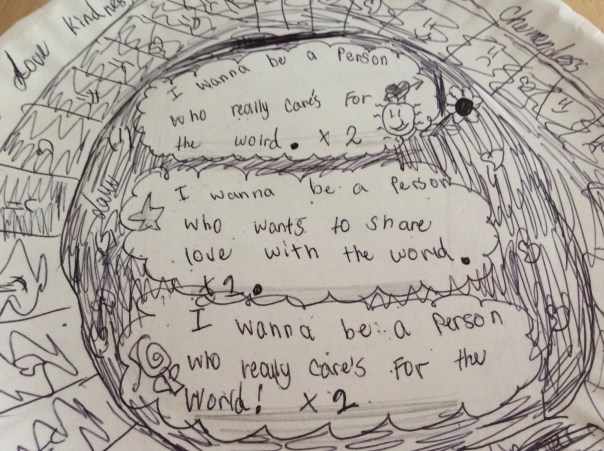 love kindness
I wanna be a Person
who really care's For
the world. x 2
I wanna be a Person
who wants to share
love with the world.
x 2.
I wanna be a Person
who really care's For the
World! x 2